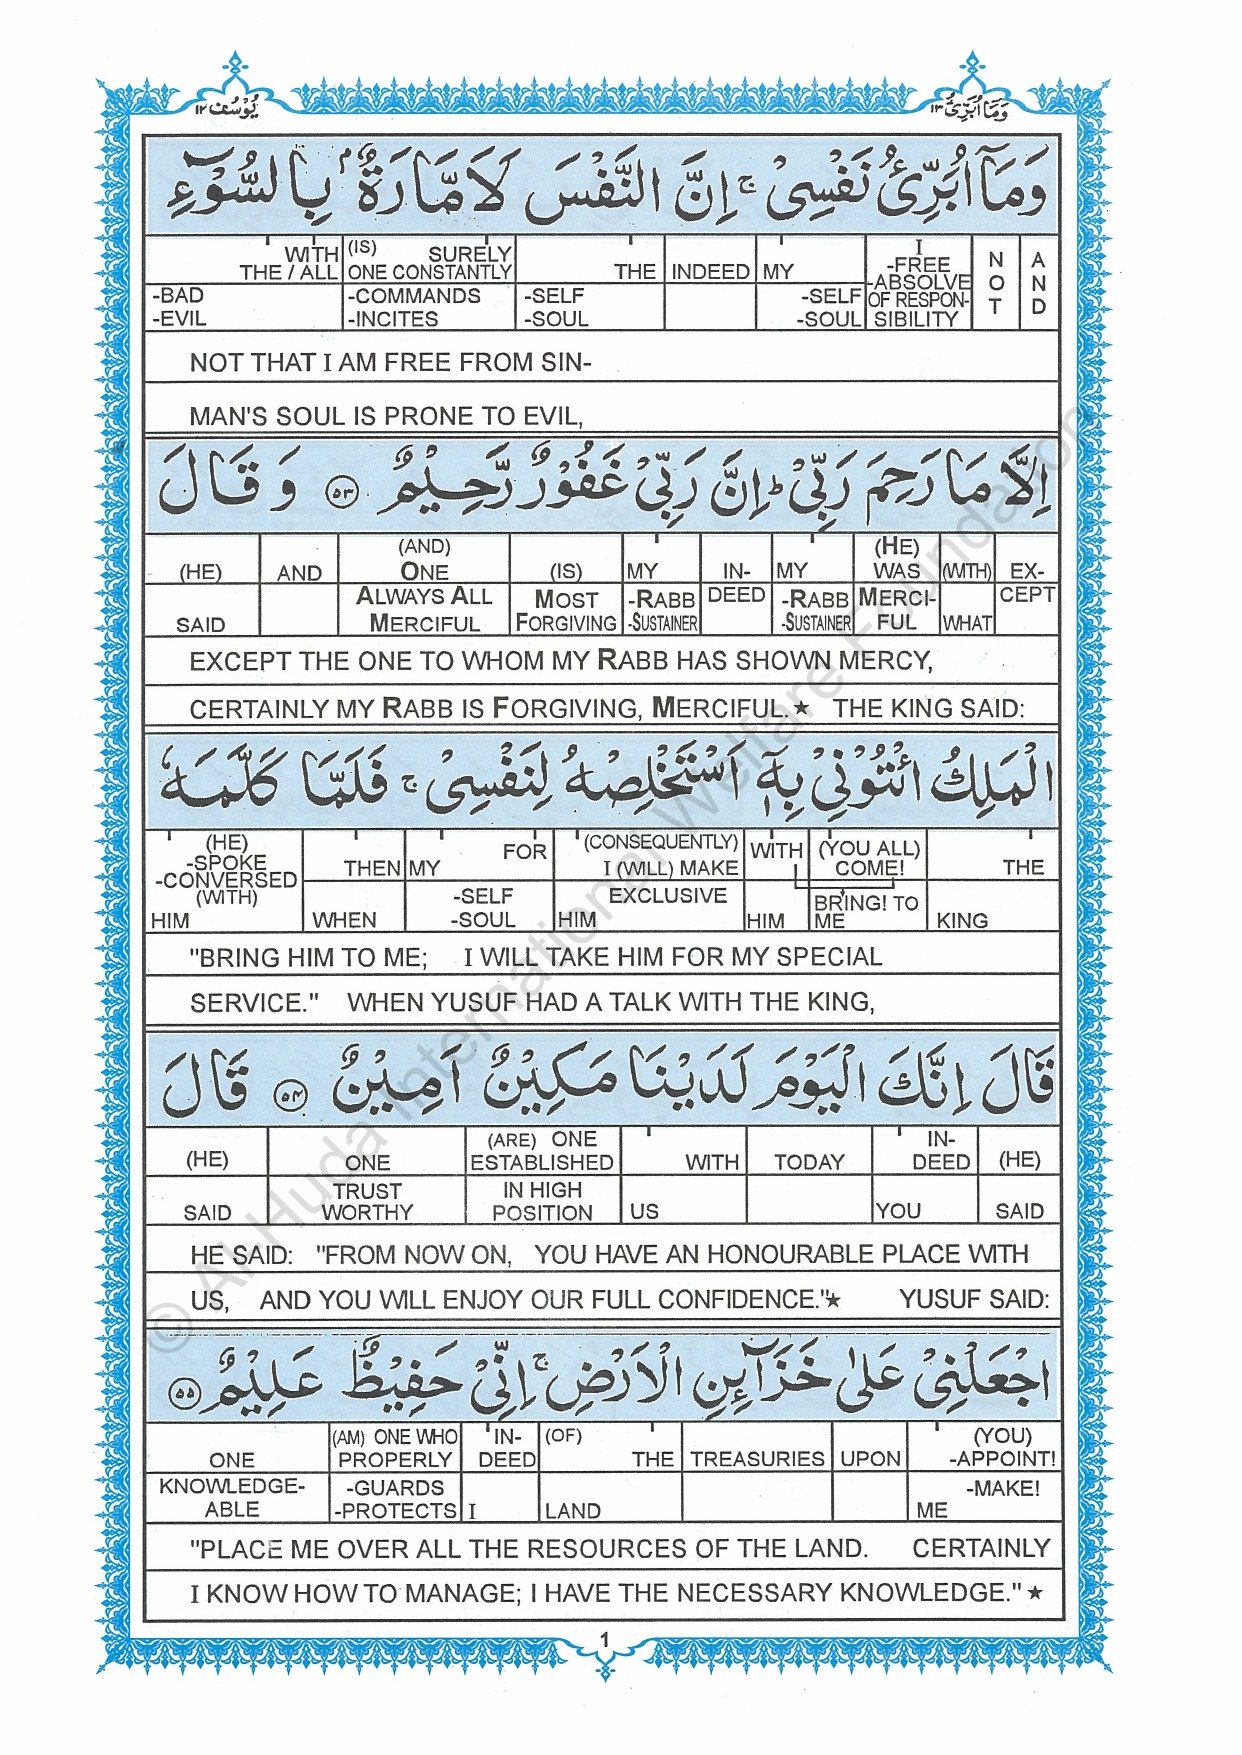 يُوْسُف ١٢
وَمَآ اُبَرِّئُ ١٣
وَمَآ اُبَرِّئُ نَفْسِىْ ۚ اِنَّ النَّفْسَ لَاَمَّارَةٌۢ بِالسُّوْٓءِ
WITH (IS) SURELY I N A
THE / ALL ONE CONSTANTLY THE INDEED MY -FREE O N
-ABSOLVE T D
-BAD -COMMANDS -SELF -SELF OF RESPON-
-EVIL -INCITES -SOUL -SOUL SIBILITY
NOT THAT I AM FREE FROM SIN-
MAN'S SOUL IS PRONE TO EVIL,
اِلَّا مَا رَحِمَ رَبِّىْ ؕ اِنَّ رَبِّىْ غَفُوْرٌ رَّحِيْمٌ ﴿٥٣﴾ وَ قَالَ
(AND) (HE)
(HE) AND ONE (IS) MY IN- MY WAS (WITH) EX-
ALWAYS ALL MOST -RABB DEED -RABB MERCI- CEPT
SAID MERCIFUL FORGIVING -SUSTAINER -SUSTAINER FUL WHAT
EXCEPT THE ONE TO WHOM MY RABB HAS SHOWN MERCY,
CERTAINLY MY RABB IS FORGIVING, MERCIFUL ★ THE KING SAID:
الْمَلِكُ ائْتُوْنِىْ بِهٖٓ اَسْتَخْلِصْهُ لِنَفْسِىْ ۚ فَلَمَّا كَلَّمَهٗ
(HE) FOR (CONSEQUENTLY) WITH (YOU ALL)
-SPOKE THEN MY I (WILL) MAKE COME! THE
-CONVERSED -SELF EXCLUSIVE BRING! TO
(WITH)
HIM WHEN -SOUL HIM HIM ME KING
"BRING HIM TO ME; I WILL TAKE HIM FOR MY SPECIAL
SERVICE." WHEN YUSUF HAD A TALK WITH THE KING,
قَالَ اِنَّكَ الْيَوْمَ لَدَيْنَا مَكِيْنٌ اَمِيْنٌ ﴿٥٤﴾ قَالَ
(ARE) ONE IN-
(HE) ONE ESTABLISHED WITH TODAY DEED (HE)
TRUST IN HIGH
SAID WORTHY POSITION US YOU SAID
HE SAID: "FROM NOW ON, YOU HAVE AN HONOURABLE PLACE WITH
US, AND YOU WILL ENJOY OUR FULL CONFIDENCE."★ YUSUF SAID:
اجْعَلْنِىْ عَلٰى خَزَآئِنِ الْاَرْضِ ۚ اِنِّىْ حَفِيْظٌ عَلِيْمٌ ﴿٥٥﴾
(AM) ONE WHO IN- (OF) (YOU)
ONE PROPERLY DEED THE TREASURIES UPON -APPOINT!
KNOWLEDGE- -GUARDS -MAKE!
ABLE -PROTECTS I LAND ME
"PLACE ME OVER ALL THE RESOURCES OF THE LAND. CERTAINLY
I KNOW HOW TO MANAGE; I HAVE THE NECESSARY KNOWLEDGE." ★
1
© Al Huda International Welfare Foundation